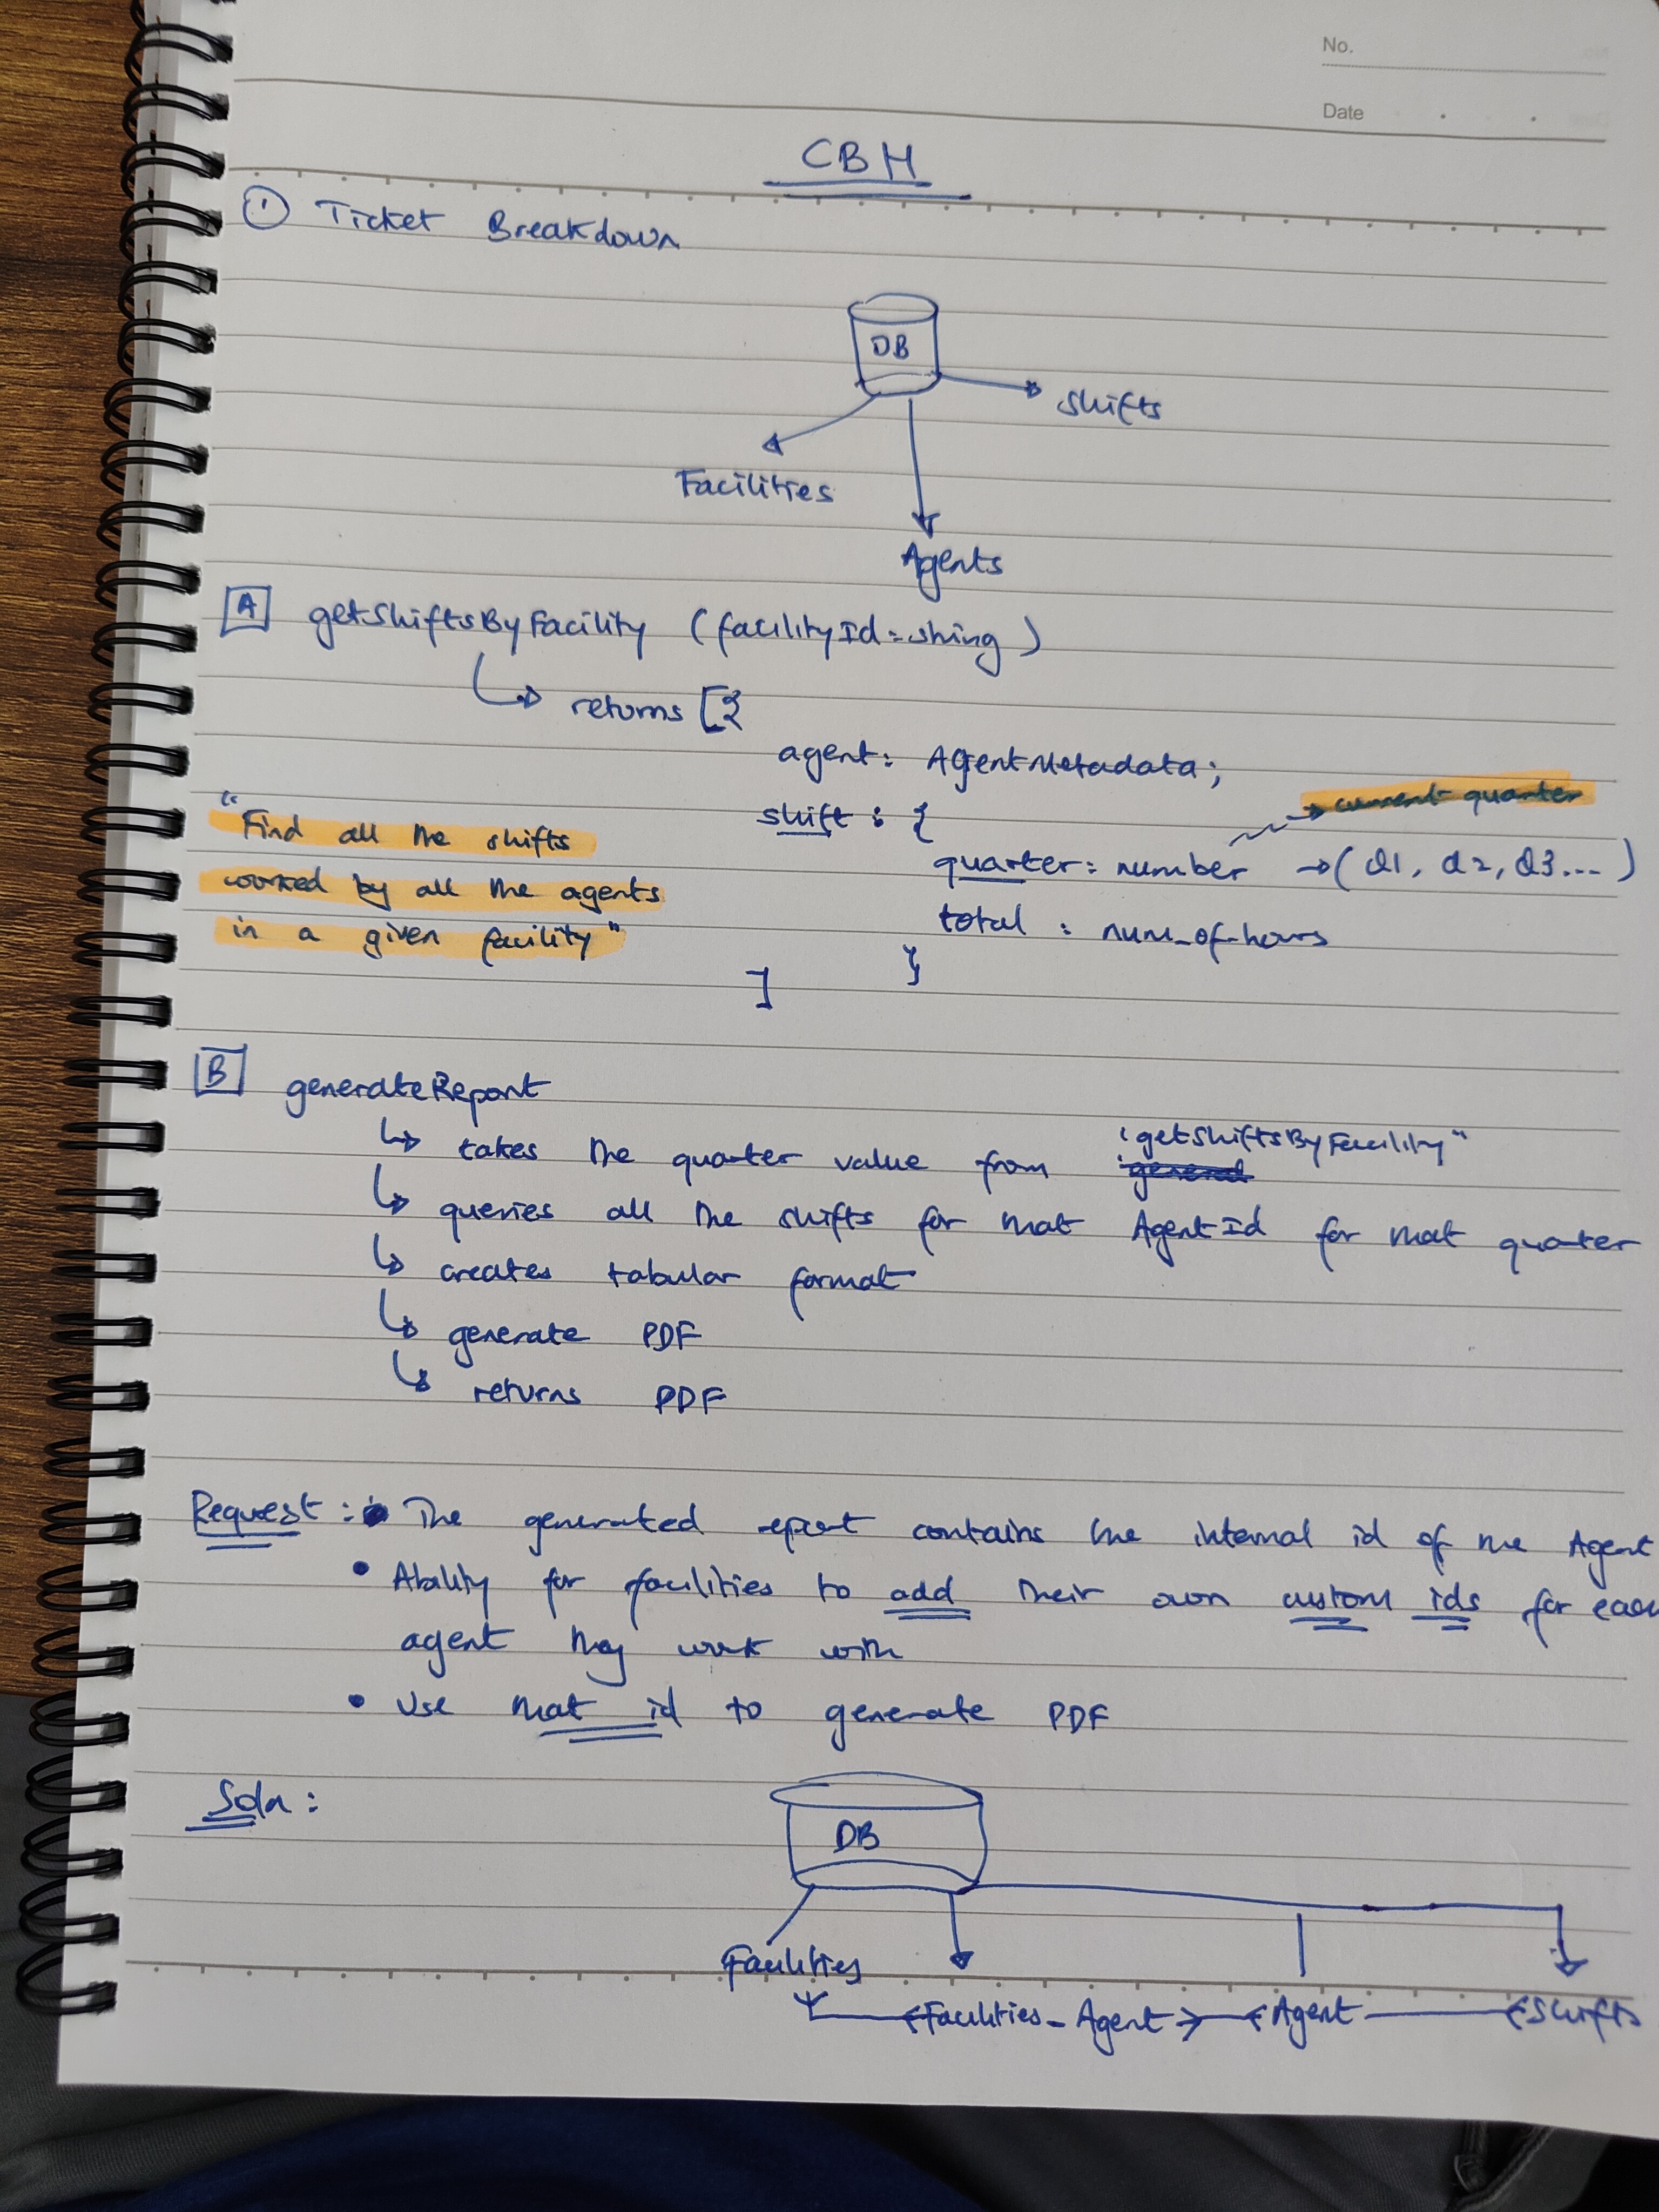 No.
Date
CBH
① Ticket Breakdown
DB
Shifts
Facilities
Agents
A getShiftsByFacility (facilityId: string)
returns [{
agent: AgentMetadata;
current quarter
shift : {
"Find all the shifts
quarter: number → (Q1, Q2, Q3...)
worked by all the agents
total : num_of_hours
in a given facility"
}
]
B generateReport
'getShiftsByFacility"
takes the quarter value from
queries all the shifts for that AgentId for that quarter
creates tabular format
generate PDF
returns PDF
Request : • The generated report contains the internal id of the Agent
• Ability for facilities to add their own custom ids for each
agent they work with
• Use that id to generate PDF
Soln :
DB
Facilities
Facilities_Agent Agent Shifts